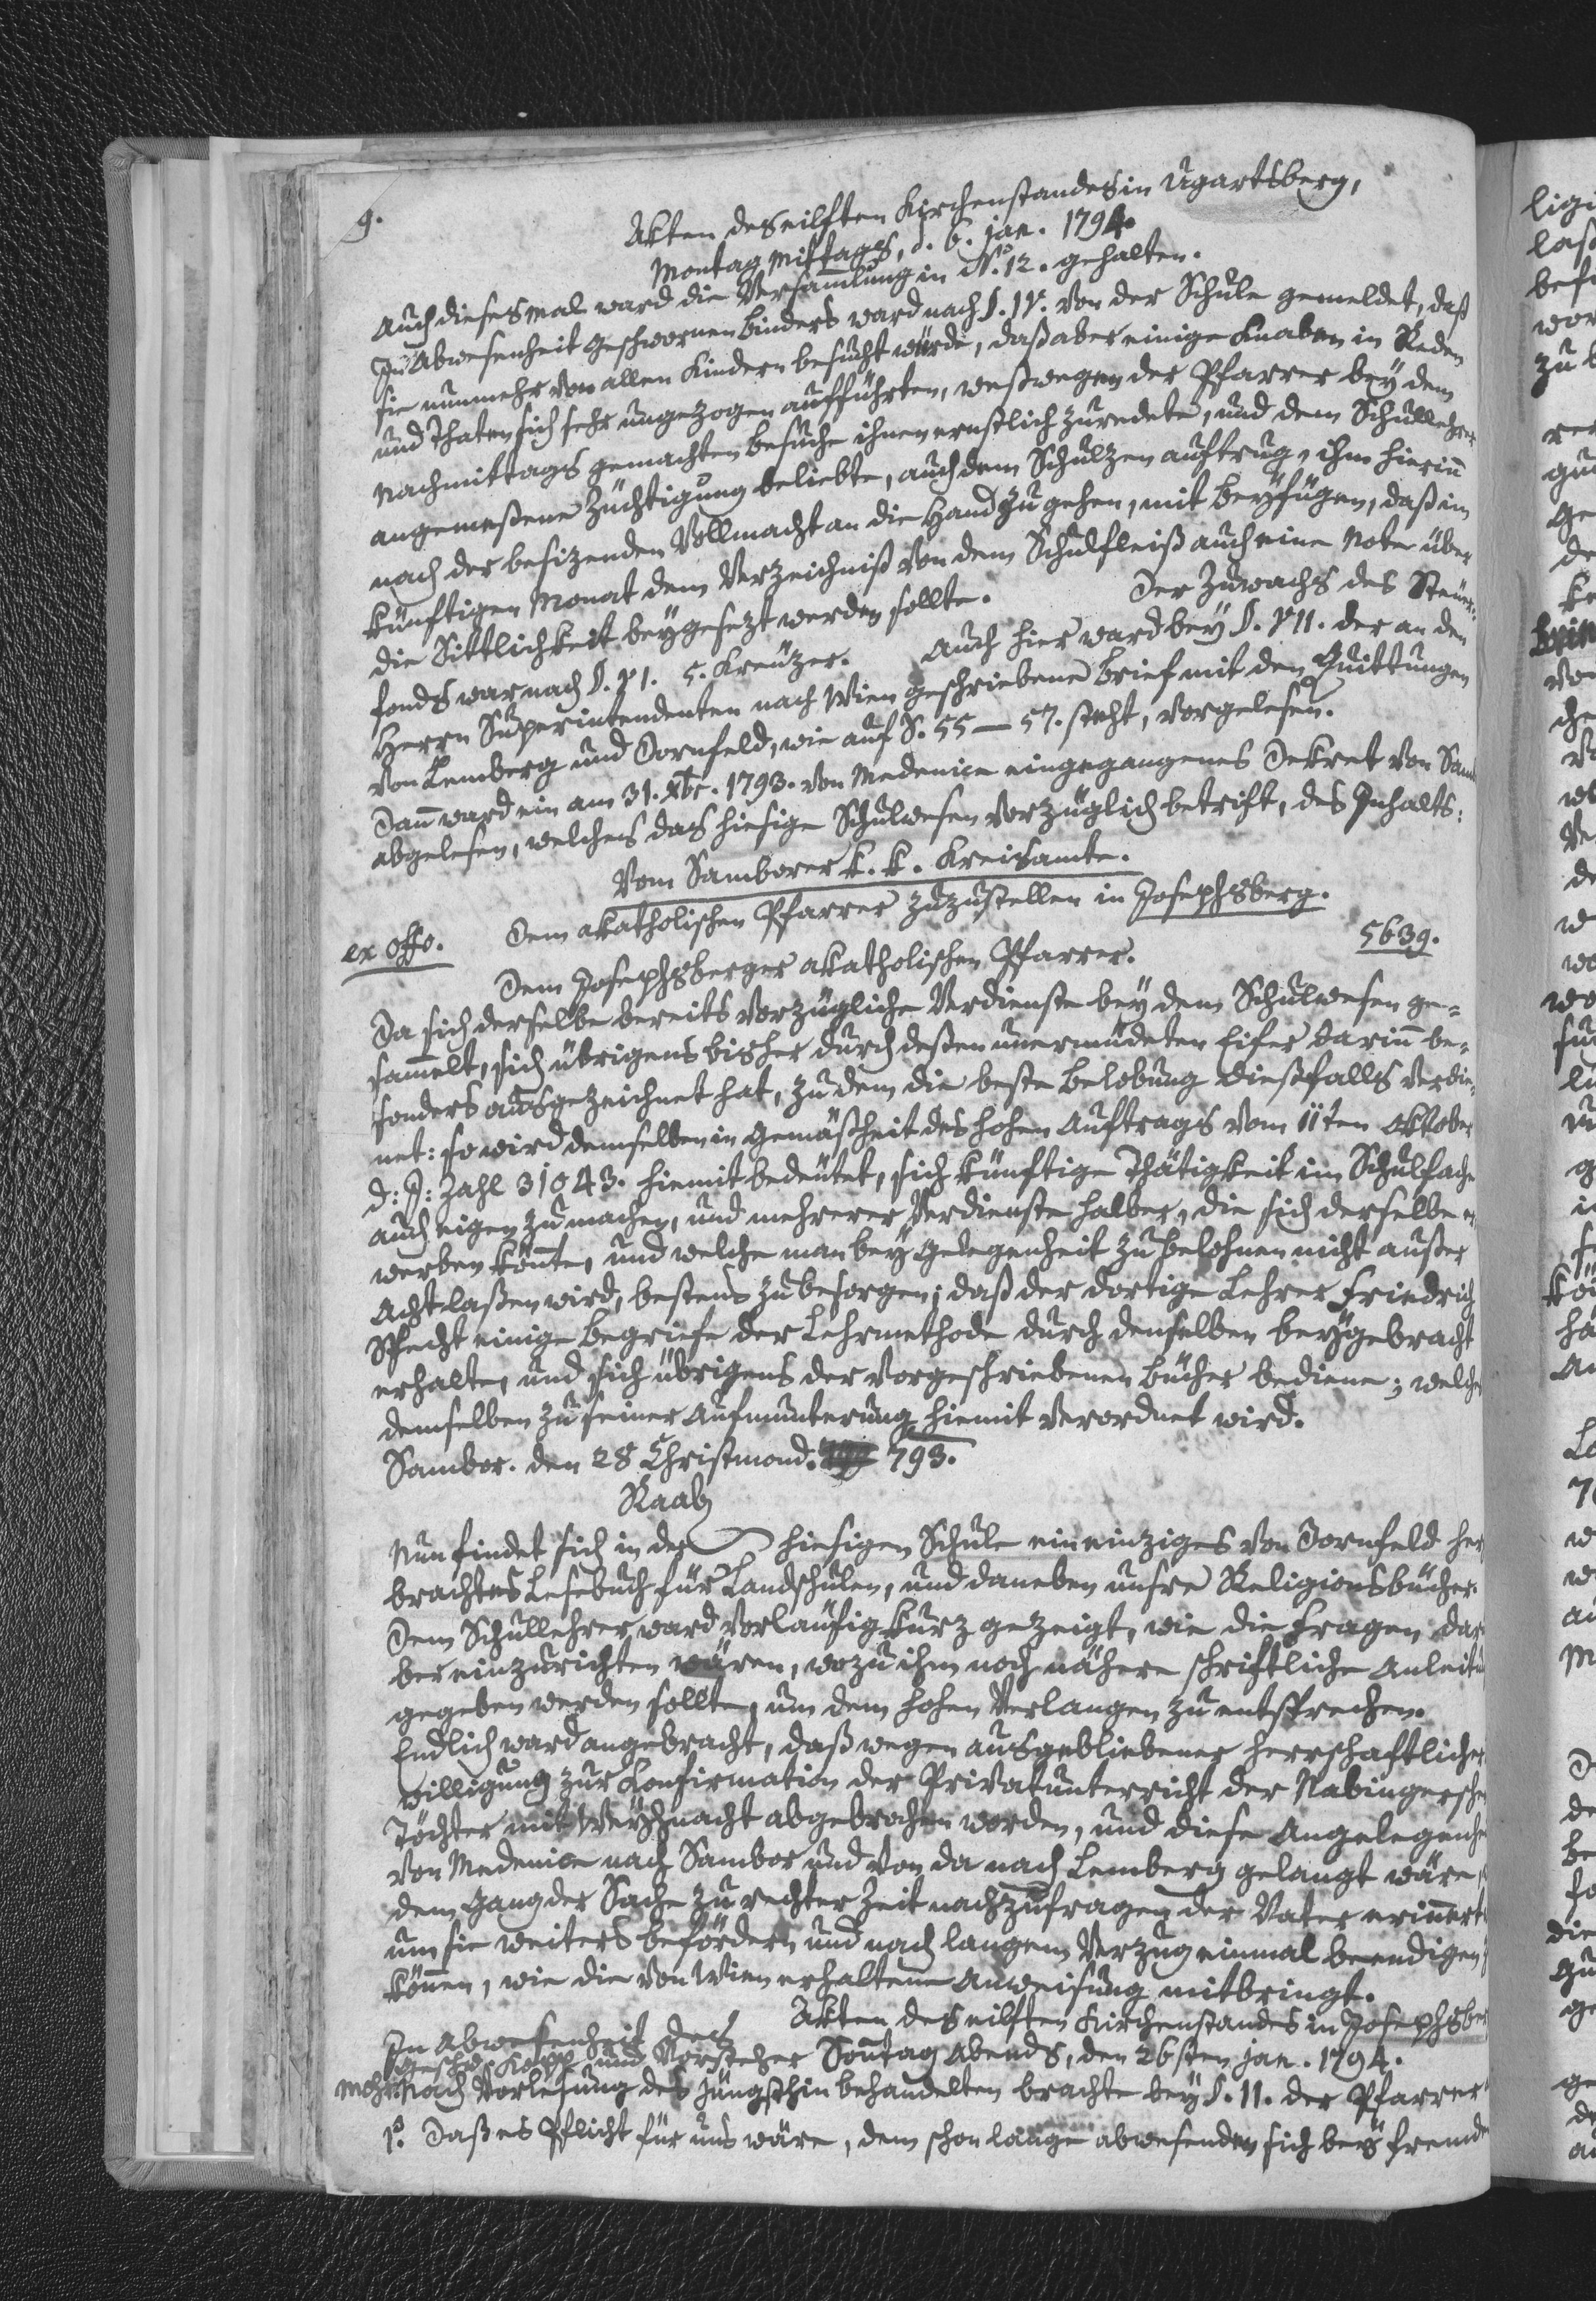 9.
Akten des eilften Kirchenstandes in Ugartsberg,
Montag Mittags, d. 6. jan. 1794.
Auch dieses mal ward die Versam̄lung in No. 12. gehalten.
In Abwesenheit Geschwornen Binders ward nach §. IV. von der Schule gemeldet, daß
sie nunmehr von allen Kindern besucht würde, daß aber einige Knaben in Reden
und Thaten sich sehr ungezogen aufführten, weßwegen der Pfarrer bey dem
Nachmittags gemachten Besuche ihnen ernstlich zuredete, und dem Schullehrer
angemeßene Züchtigung beliebte, auch dem Schulzen auftrug, ihm hierin̄
nach der besizenden Vollmacht an die Hand zu gehen, mit Beyfügen, daß im
künftigen Monat dem Verzeichniß von dem Schulfleiß auch eine Note über
die Sittlichkeit beygesezt werden sollte.
Der Zuwachs des Steuer-
fonds war nach §. VI. 5. Kreuzer. Auch hier ward bey §. VII. der an den
Herrn Superintendenten nach Wien geschriebene Brief mit den Quittungen
von Lemberg und Dornfeld, wie auf S. 55 — 57. steht, vorgelesen.
Dan̄ ward ein am 31. Xbr. 1793. von Medenice eingegangenes Dekret von Samb
abgelesen, welches das hiesige Schulwesen vorzüglich betrift, des Inhalts:
Vom Samborer k. k. Kreisamte.
Dem akatholischen Pfarrer zuzustellen in Josephsberg.
ex offo.
5639.
Dem Josephsberger akatholischen Pfarrer.
Da sich derselbe bereits vorzügliche Verdienste bey dem Schulwesen ge-
sam̄elt, sich übrigens bisher durch deßen unermüdeten Eifer darin̄ be-
sonders ausgezeichnet hat, zudem die beste Belobung dießfalls verdie-
net: so wird demselben in Gemäßheit des hohen Auftrags vom 11ten Oktober
d: J: Zahl 31043. hiemit bedeutet, sich künftige Thätigkeit im Schulfache
auch eigen zu machen, und mehrerer Verdienste halber, die sich derselbe er
werben kön̄te, und welche man bey Gelegenheit zu belohnen nicht außer
Acht laßen wird, bestens zu besorgen; daß der dortige Lehrer Friedrich
Specht einige Begriefe der Lehrmethode durch denselben beygebracht
erhalte, und sich übrigens der vorgeschriebenen Bücher bediene; welches
demselben zu seiner Aufmunterung hiemit verordnet wird.
Sambor. den 28 Christmond. 793.
Raab
Nun findet sich in der hiesigen Schule ein einziges von Dornfeld her
brachtes Lesebuch für Landschulen, und daneben unsre Religionsbücher.
Dem Schullehrer ward vorläufig kurz gezeigt, wie die Fragen dar
ber einzurichten wären, wozu ihm noch nähere schriftliche Anleitu
gegeben werden sollte, um dem hohen Verlangen zu entsprechen.
Endlich ward angebracht, daß wegen ausgebliebener herrschaftlicher
willigung zur Konfirmation der Privatunterricht der Nabingersche
Töchter mit Weyhnacht abgebrochen worden, und diese Angelegenhe
von Medenice nach Sambor und von da nach Lemberg gelangt wäre,
dem Gang der Sache zu rechter Zeit nachzufragen der Vater erin̄ert
um sie weiters befördern und nach langem Verzug einmal beendigen
kön̄en, wie die von Wien erhaltene Anweisung mitbringt.
Akten des eilften Kirchenstandes in Josephsber
In Abwesenheit des
geschw Kopp und Vorsteher Son̄tag Abends, den 26sten jan. 1794.
Mohr Nach Vorlesung des jüngsthin behandelten brachte bey §. II. der Pfarrer
1o. Daß es Pflicht für uns wäre, dem schon lange abwesenden sich bey fremde